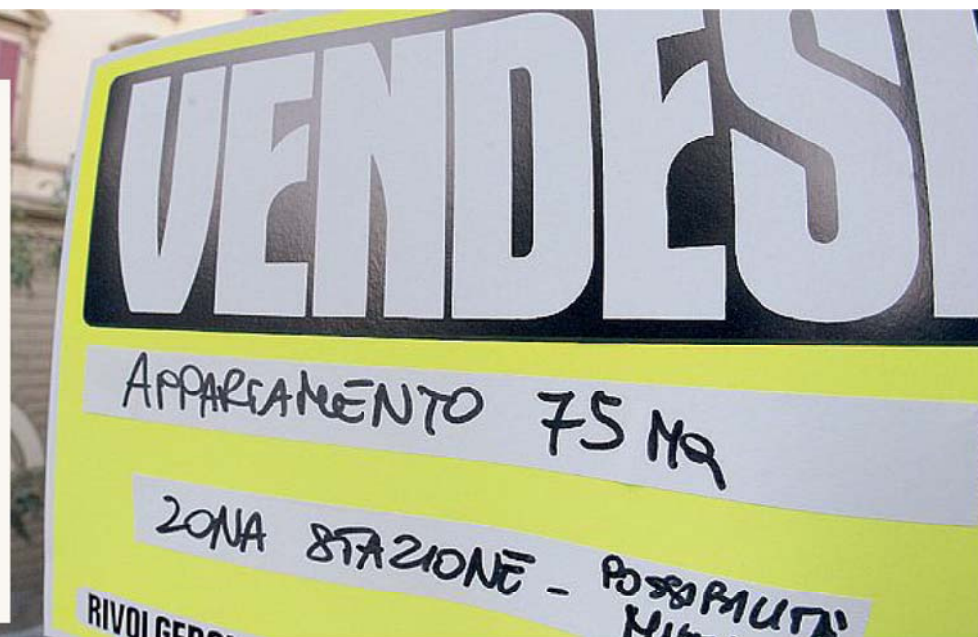 VENDESI
APPARTAMENTO 75 MQ
ZONA STAZIONE - POSSIBILITÀ